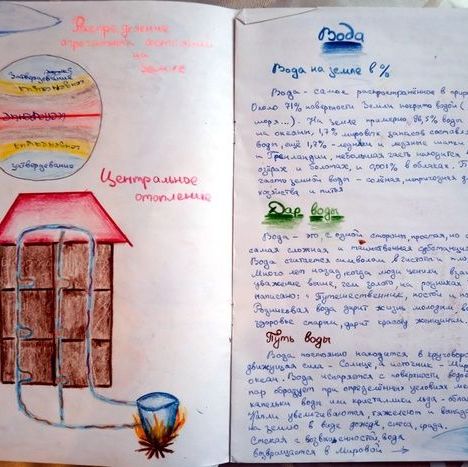 Распределение
агрегатных состояний
на
земле
затвердевание
затвердевание
Центральное
отопление
Вода
Вода на земле в %
Вода - самое распространённое в прир
Около 71% поверхности Земли покрыто водой (
моря...). На Земле примерно, 96,5% воды
на океаны, 1,7% мировых запасов состав
воды, ещё 1,7% - ледники и ледяные шапки
и Гренландии, небольшая часть находится
озёрах и болотах, и 0,001% в облаках.
часть земной воды - солёная, непригодная д
хозяйства и питья
Дар воды
Вода - это, с одной стороны, простая, но с
самая сложная и таинственная субстанци
Вода считается символом
Много лет назад, когда люди
уважение выше, чем золото, на родниках
написано: "Путешественник, постой и н
Родниковая вода дарит жизнь молодым, в
здоровье старым, дарит красоту женщинам.
Путь воды
Вода постоянно находится в круговор
движущая сила - Солнце, а источник - Мир
океан. Вода испаряется с поверхности водое
пар образует при определённых условиях мел
капельки воды или кристаллики льда - облак
Капли увеличиваются, тяжелеют и выпад
на землю в виде дождя, снега, града.
Стекая с возвышенностей, вода
возвращается в Мировой →